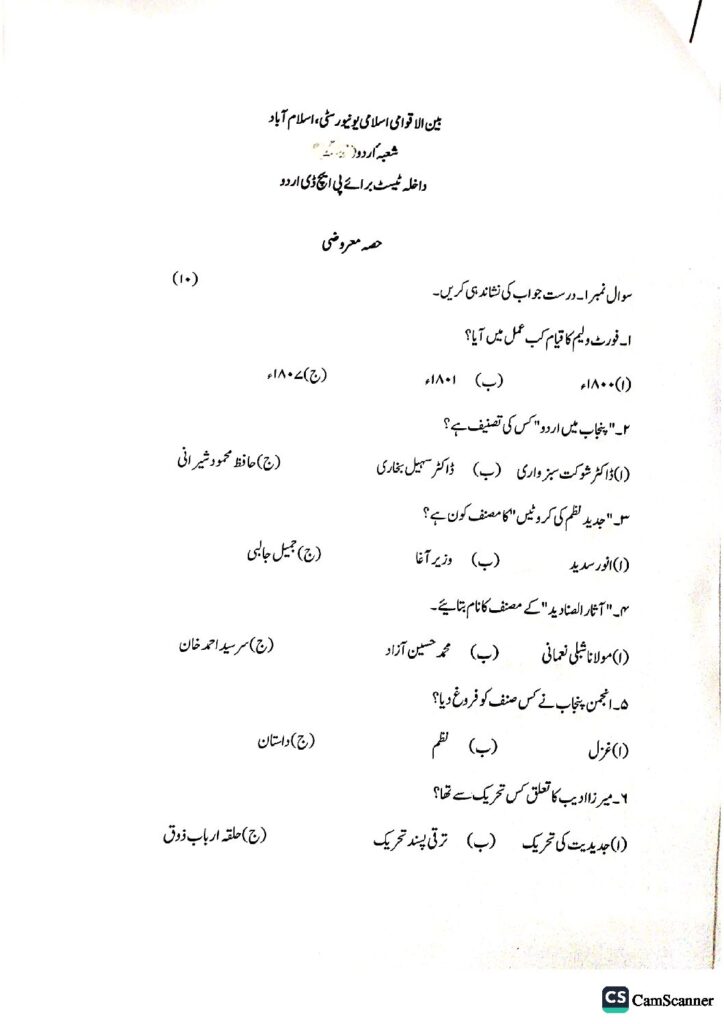 بین الاقوامی اسلامی یونیورسٹی، اسلام آباد
شعبہ اُردو
داخلہ ٹیسٹ برائے پی ایچ ڈی اردو
حصہ معروضی
سوال نمبر ۱۔ درست جواب کی نشاندہی کریں۔ (۱۰)
۱۔ فورٹ ولیم کا قیام کب عمل میں آیا؟
(ا) ۱۸۰۰ء (ب) ۱۸۰۱ء (ج) ۱۸۰۷ء
۲۔ "پنجاب میں اردو" کس کی تصنیف ہے؟
(ا) ڈاکٹر شوکت سبزواری (ب) ڈاکٹر سہیل بخاری (ج) حافظ محمود شیرانی
۳۔ "جدید نظم کی کروٹیں" کا مصنف کون ہے؟
(ا) انور سدید (ب) وزیر آغا (ج) جمیل جالبی
۴۔ "آثار الصنادید" کے مصنف کا نام بتائیے۔
(ا) مولانا شبلی نعمانی (ب) محمد حسین آزاد (ج) سر سید احمد خان
۵۔ انجمن پنجاب نے کس صنف کو فروغ دیا؟
(ا) غزل (ب) نظم (ج) داستان
۶۔ میرزا ادیب کا تعلق کس تحریک سے تھا؟
(ا) جدیدیت کی تحریک (ب) ترقی پسند تحریک (ج) حلقہ ارباب ذوق
CS CamScanner